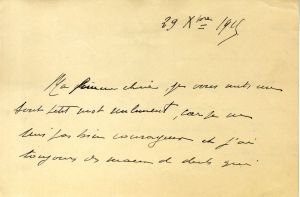 29 Xbre 1915
Ma chérie, je vous mets un
tout petit mot seulement, car je ne
suis pas bien courageux et j'ai
toujours des maux de dents qui